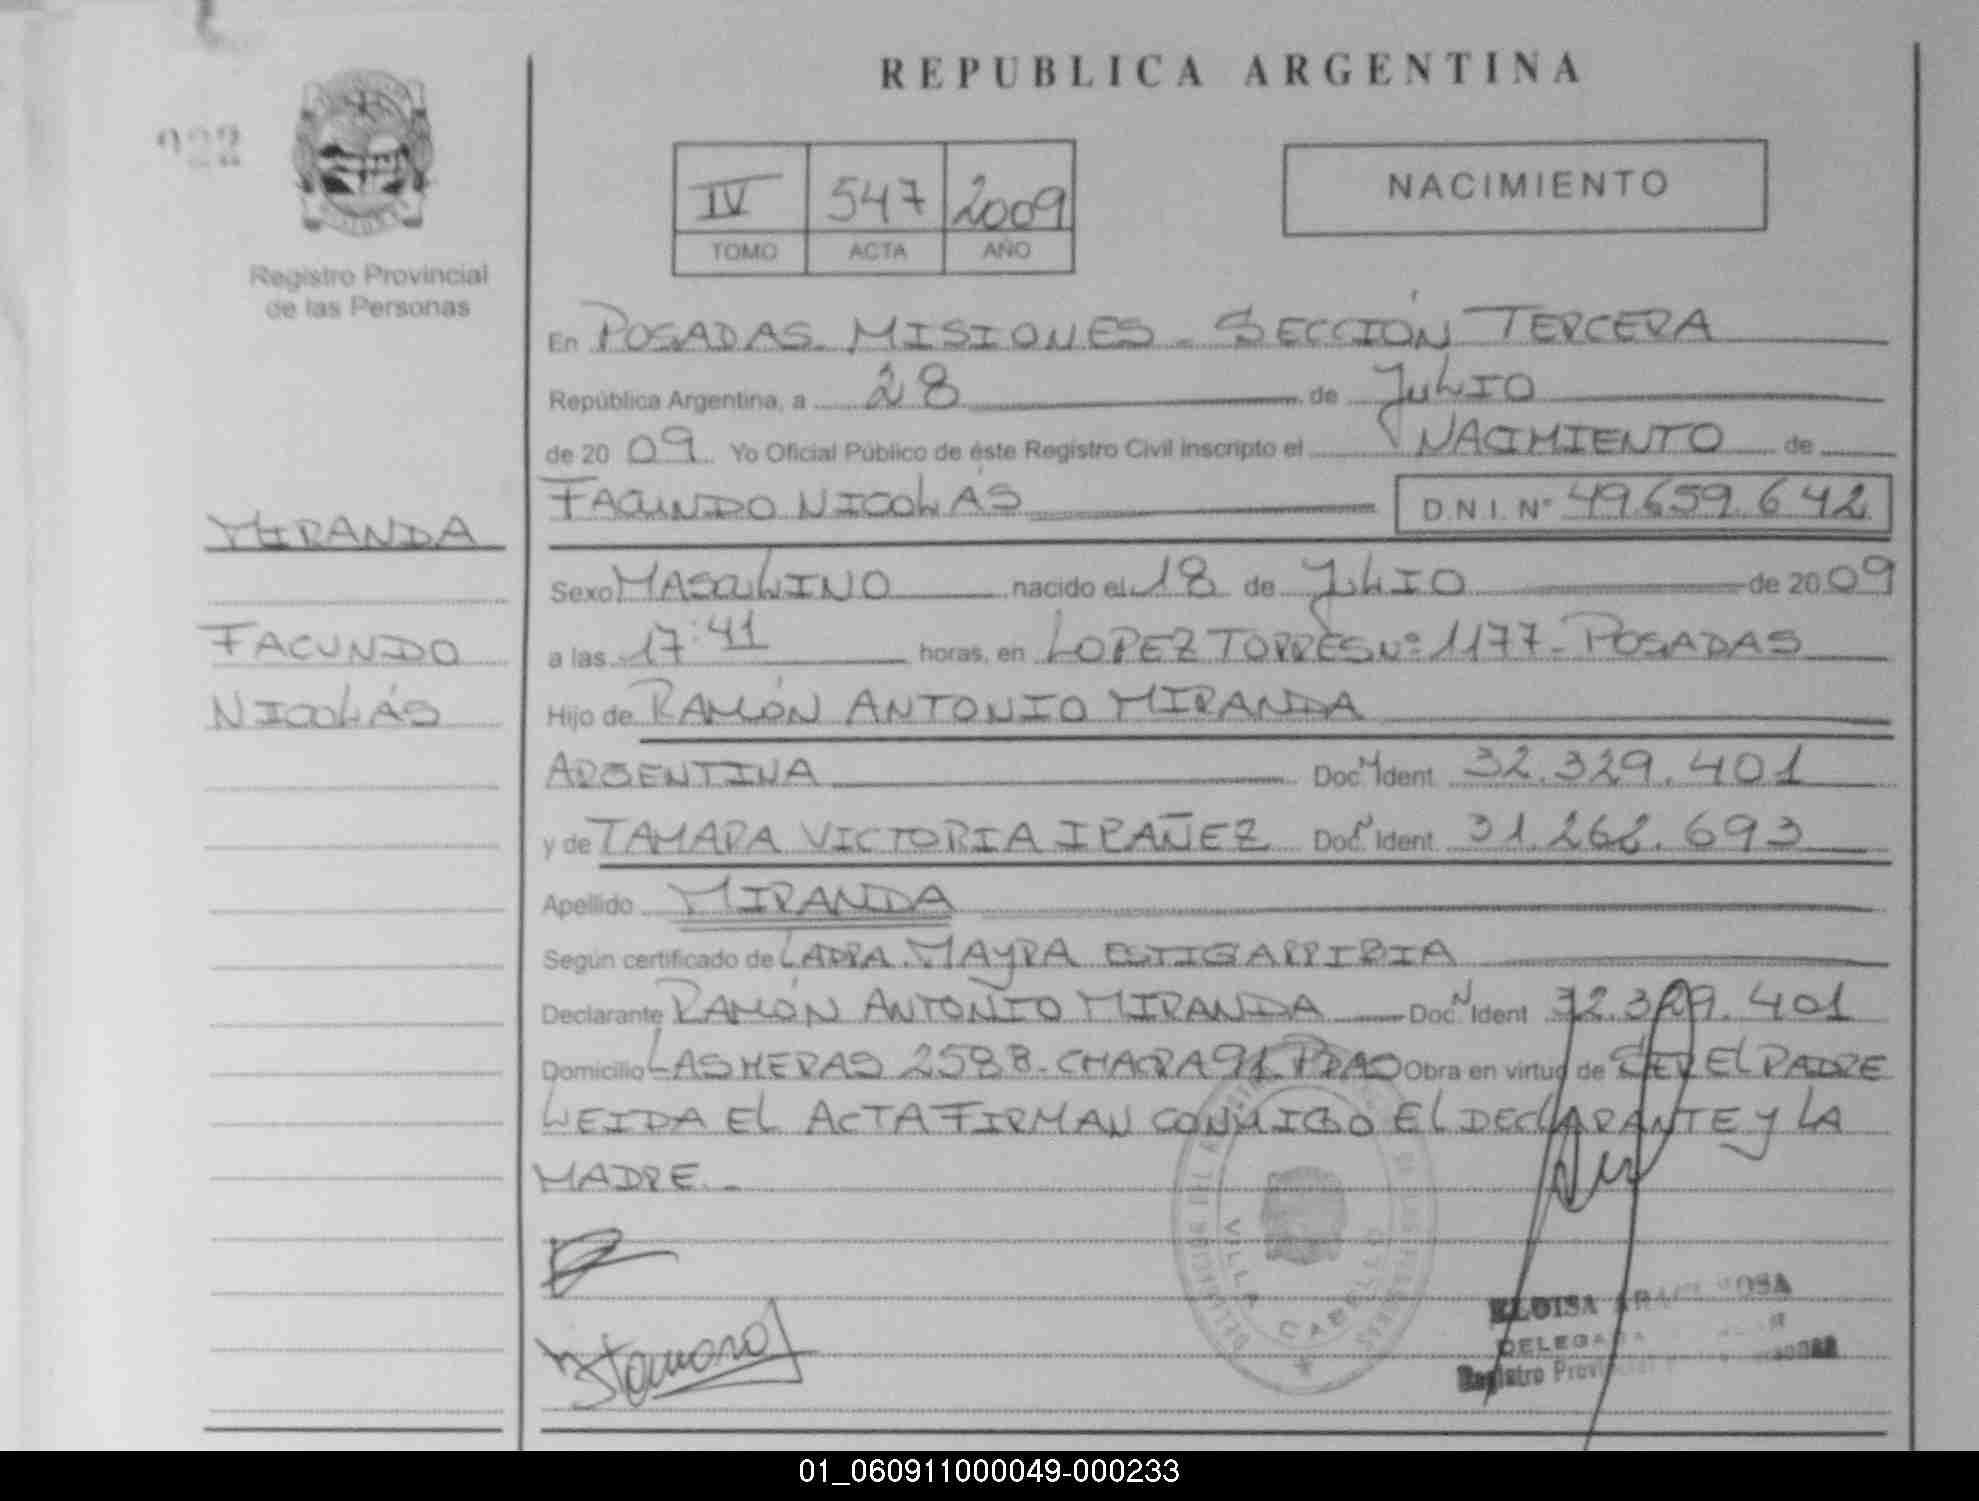 REPUBLICA ARGENTINA
922
Registro Provincial
de las Personas
IV 547 2009
TOMO ACTA AÑO
NACIMIENTO
En POSADAS. MISIONES - SECCIÓN TERCERA
República Argentina, a 28 de JULIO
de 20 09 Yo Oficial Público de éste Registro Civil inscripto el NACIMIENTO de
FACUNDO NICOLÁS D.N.I. Nº 49.659.642
MIRANDA
FACUNDO
NICOLÁS
Sexo MASCULINO nacido el 18 de JULIO de 20 09
a las 17:41 horas, en LOPEZ TORRES Nº 1177 - POSADAS
Hijo de RAMÓN ANTONIO MIRANDA
ARGENTINA Doc. N Ident 32.329.401
y de TAMARA VICTORIA IBAÑEZ Doc. N Ident 31.262.693
Apellido MIRANDA
Según certificado de LA DRA. MAYRA ESTIGARRIBIA
Declarante RAMÓN ANTONIO MIRANDA Doc. N Ident 32.329.401
Domicilio LAS HERAS 2588 - CHACRA 91. PDAS Obra en virtud de SER EL PADRE
LEIDA EL ACTA FIRMAN CONMIGO EL DECLARANTE Y LA
MADRE.-
VILLA CABELLO
ELOISA
Registro
01_060911000049-000233